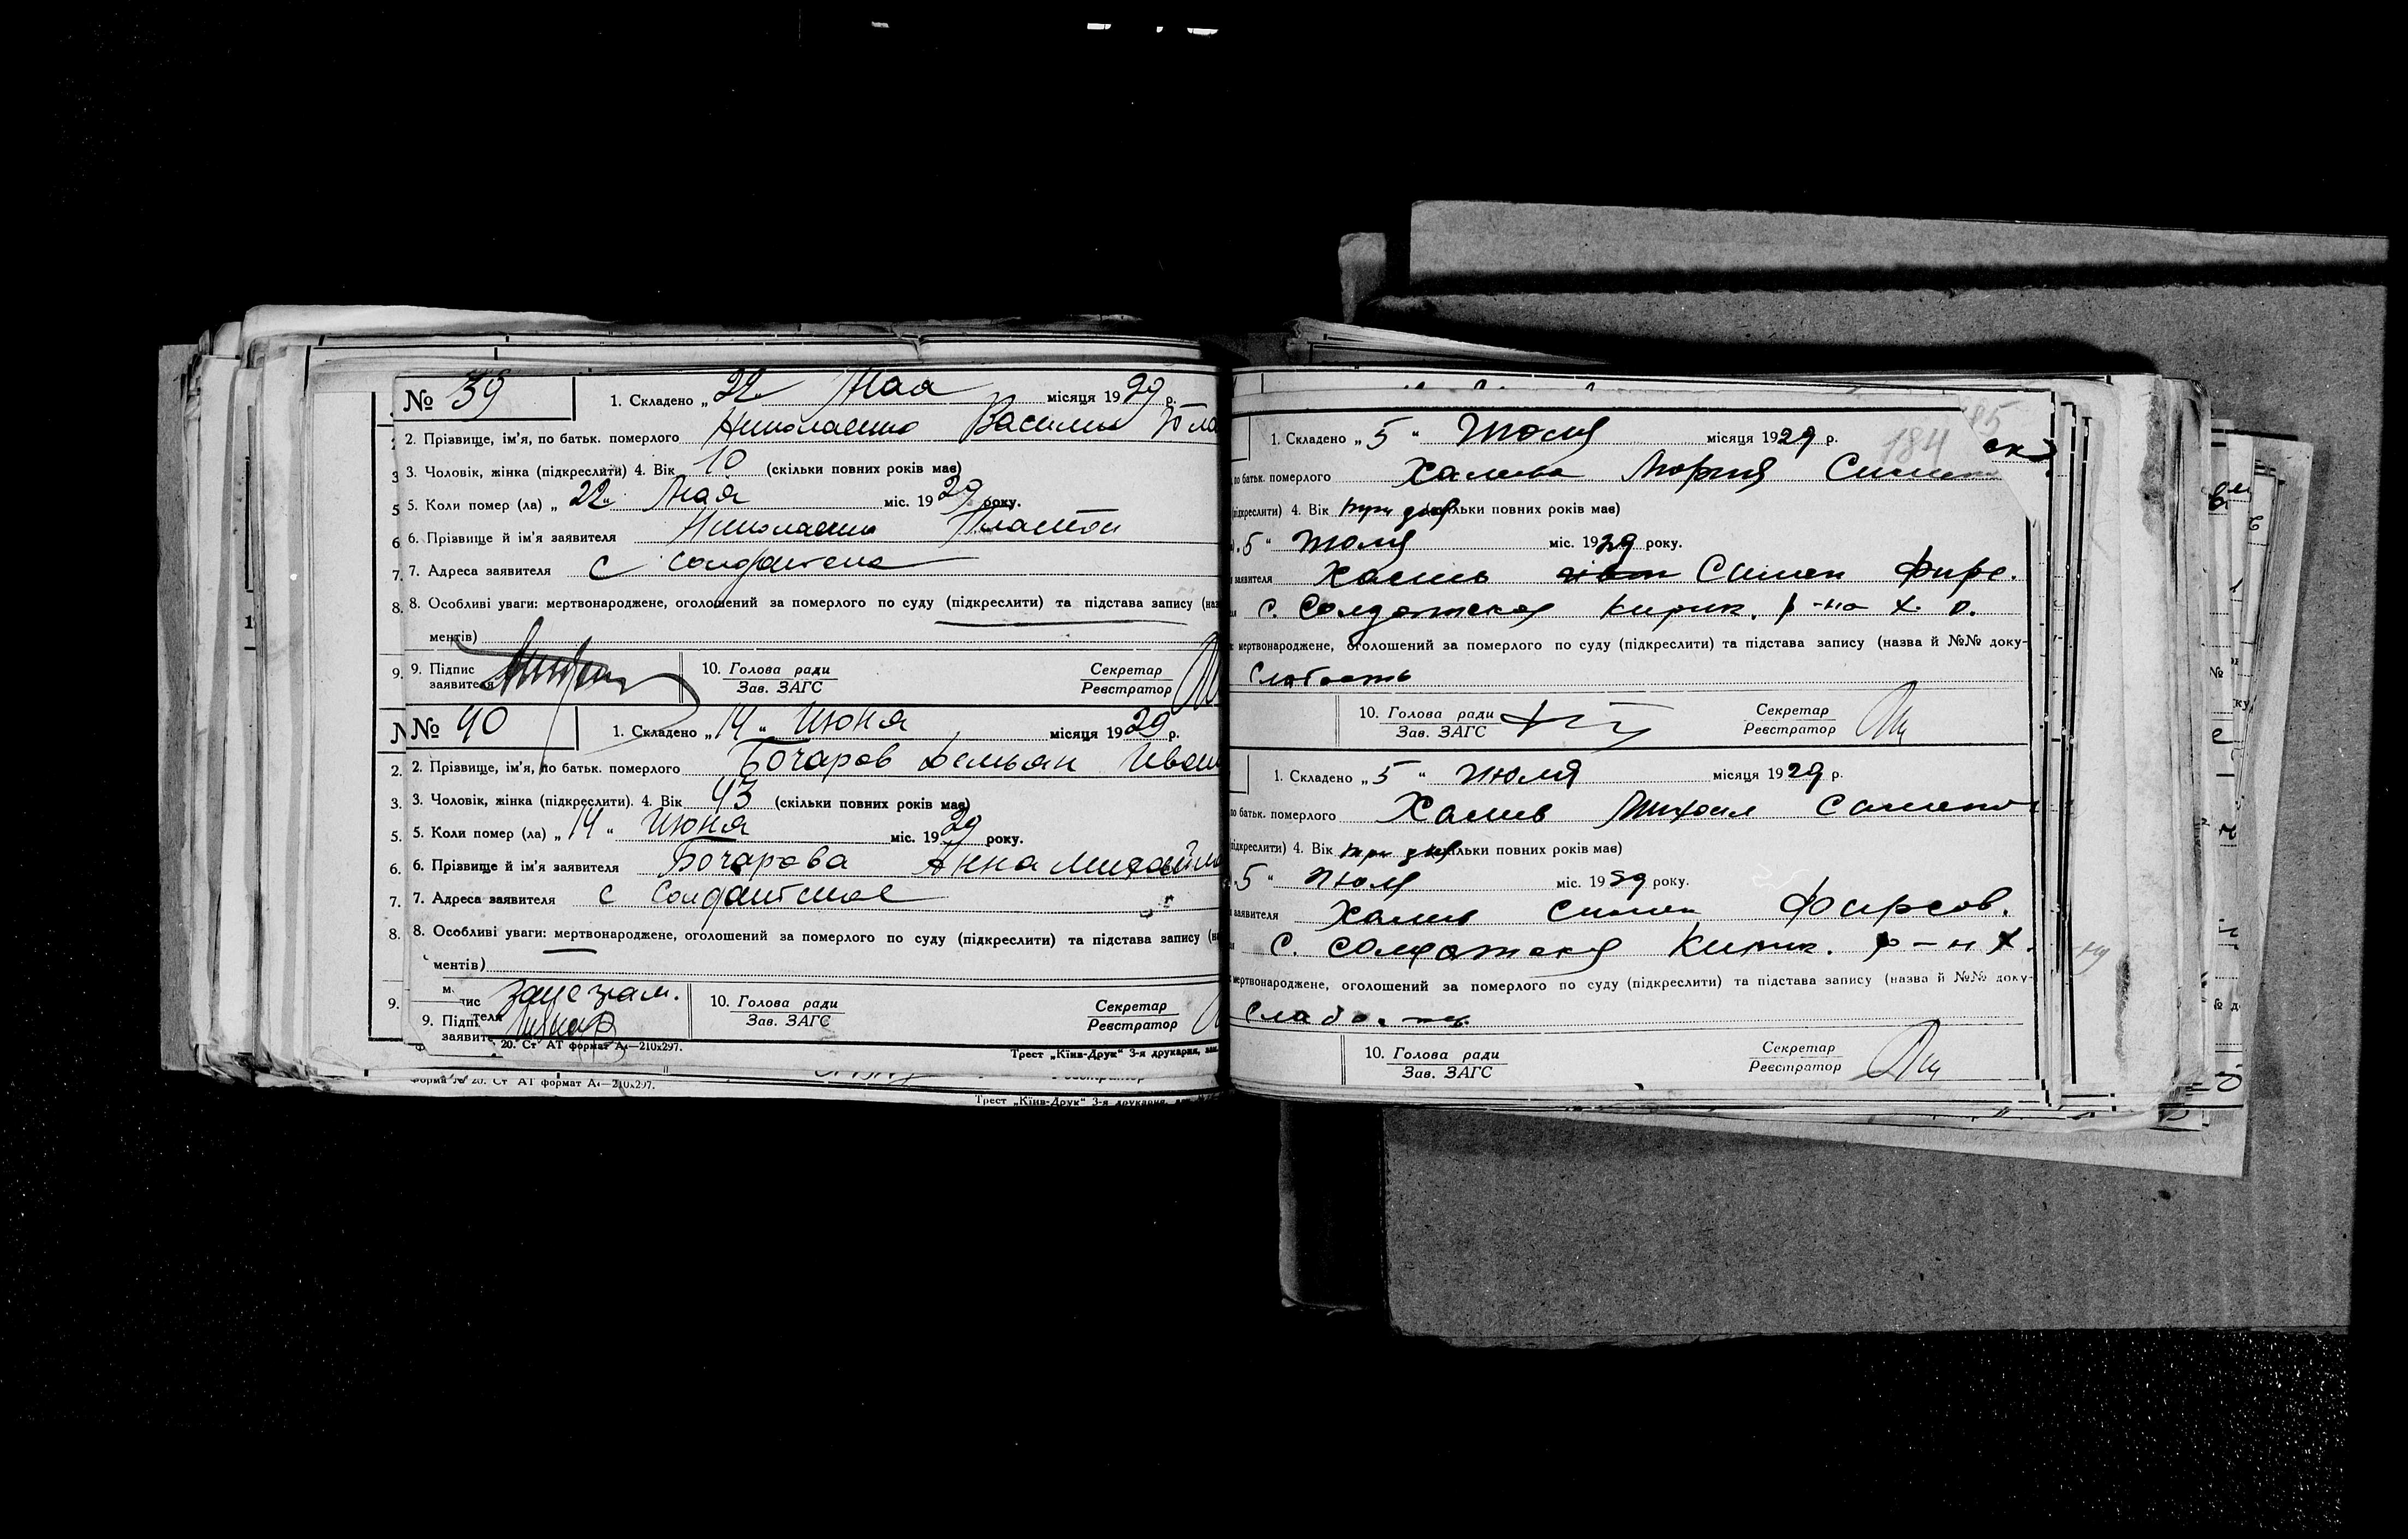 № 39
1. Складено „ 22 " Мая місяця 1929 р.
2. Прізвище, ім'я, по батьк. померлого Николаенко Василий Пла
3. Чоловік, жінка (підкреслити) 4. Вік 10 (скільки повних років має)
5. Коли помер (ла) „ 22 " Мая міс. 1929 року.
6. Прізвище й ім'я заявителя Николаенко Платон
7. Адреса заявителя с Солдатское
8. Особливі уваги: мертвонароджене, оголошений за померлого по суду (підкреслити) та підстава запису
ментів)
9. Підпис заявителя
10. Голова ради
Зав. ЗАГС
Секретар
Реєстратор
№ 40
1. Складено „ 14 " Июня місяця 1929 р.
2. Прізвище, ім'я, по батьк. померлого Бочаров Демьян Иван
3. Чоловік, жінка (підкреслити). 4. Вік 43 (скільки повних років має)
5. Коли помер (ла) „ 14 " Июня міс. 1929 року.
6. Прізвище й ім'я заявителя Бочарова Анна Михайло
7. Адреса заявителя с Солдатское
8. Особливі уваги: мертвонароджене, оголошений за померлого по суду (підкреслити) та підстава запису
ментів)
9. Підпис
заявите
10. Голова ради
Зав. ЗАГС
Секретар
Реєстратор
20. Ст АТ формат А4—210x297.
Трест „Київ-Друк" 3-я друкарня, зак.
Форма № 20. Ст АТ формат А4—210x297.
Трест „Київ-Друк" 3-я друкарня,
184
1. Складено „ 5 " Июля місяця 1929 р.
по батьк. померлого Халива Мария Симен
підкреслити) 4. Вік три дня скільки повних років має)
5 " Июля міс. 1929 року.
заявителя Халив Симен Фирс.
с. Солдатское Кирик. р-на Х. о.
мертвонароджене, оголошений за померлого по суду (підкреслити) та підстава запису (назва й №№ доку-
Слабость
10. Голова ради
Зав. ЗАГС
Секретар
Реєстратор
1. Складено „ 5 " Июля місяця 1929 р.
по батьк. померлого Халив Михаил Симено
підкреслити) 4. Вік три дня скільки повних років має)
5 " Июля міс. 1929 року.
заявителя Халив Симен Фирсов.
с. Солдатское Кирик. р-н Х.
мертвонароджене, оголошений за померлого по суду (підкреслити) та підстава запису (назва й №№ доку-
Слабость
10. Голова ради
Зав. ЗАГС
Секретар
Реєстратор